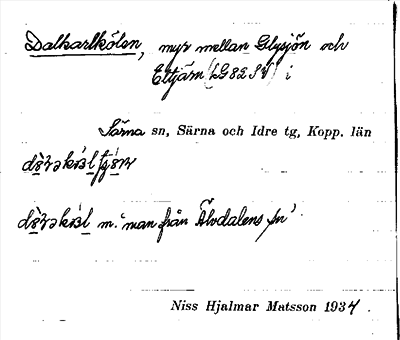 Dalkarlkölen, myr mellan Glysjön och
Eltjärn (LG 82 SV) i
Särna sn, Särna och Idre tg, Kopp. län
m. "man från Älvdalens sn"
Niss Hjalmar Matsson 1934.